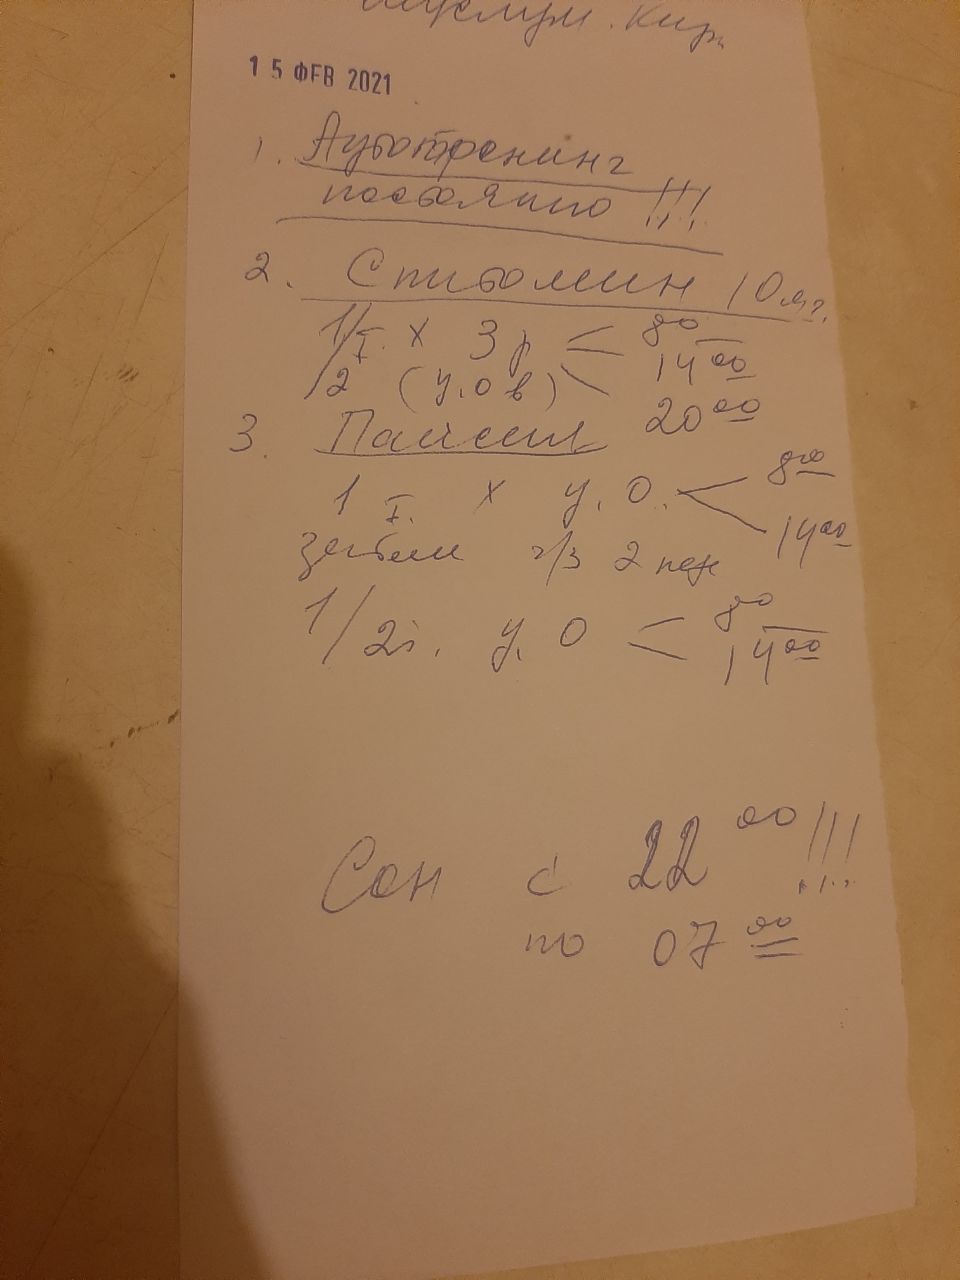 15 ФЕВ 2021
1. Аутотренинг
постоянно !!!
2. Спитомин 10 мг.
1/2 т. х 3 р 8⁰⁰
(у, о, в) 14⁰⁰
20⁰⁰
3.
1 т. х у, о. 8⁰⁰
14⁰⁰
затем ч/з 2 нед
1/2 т. у, о 8⁰⁰
14⁰⁰
Сон с 22⁰⁰ !!!
по 07⁰⁰